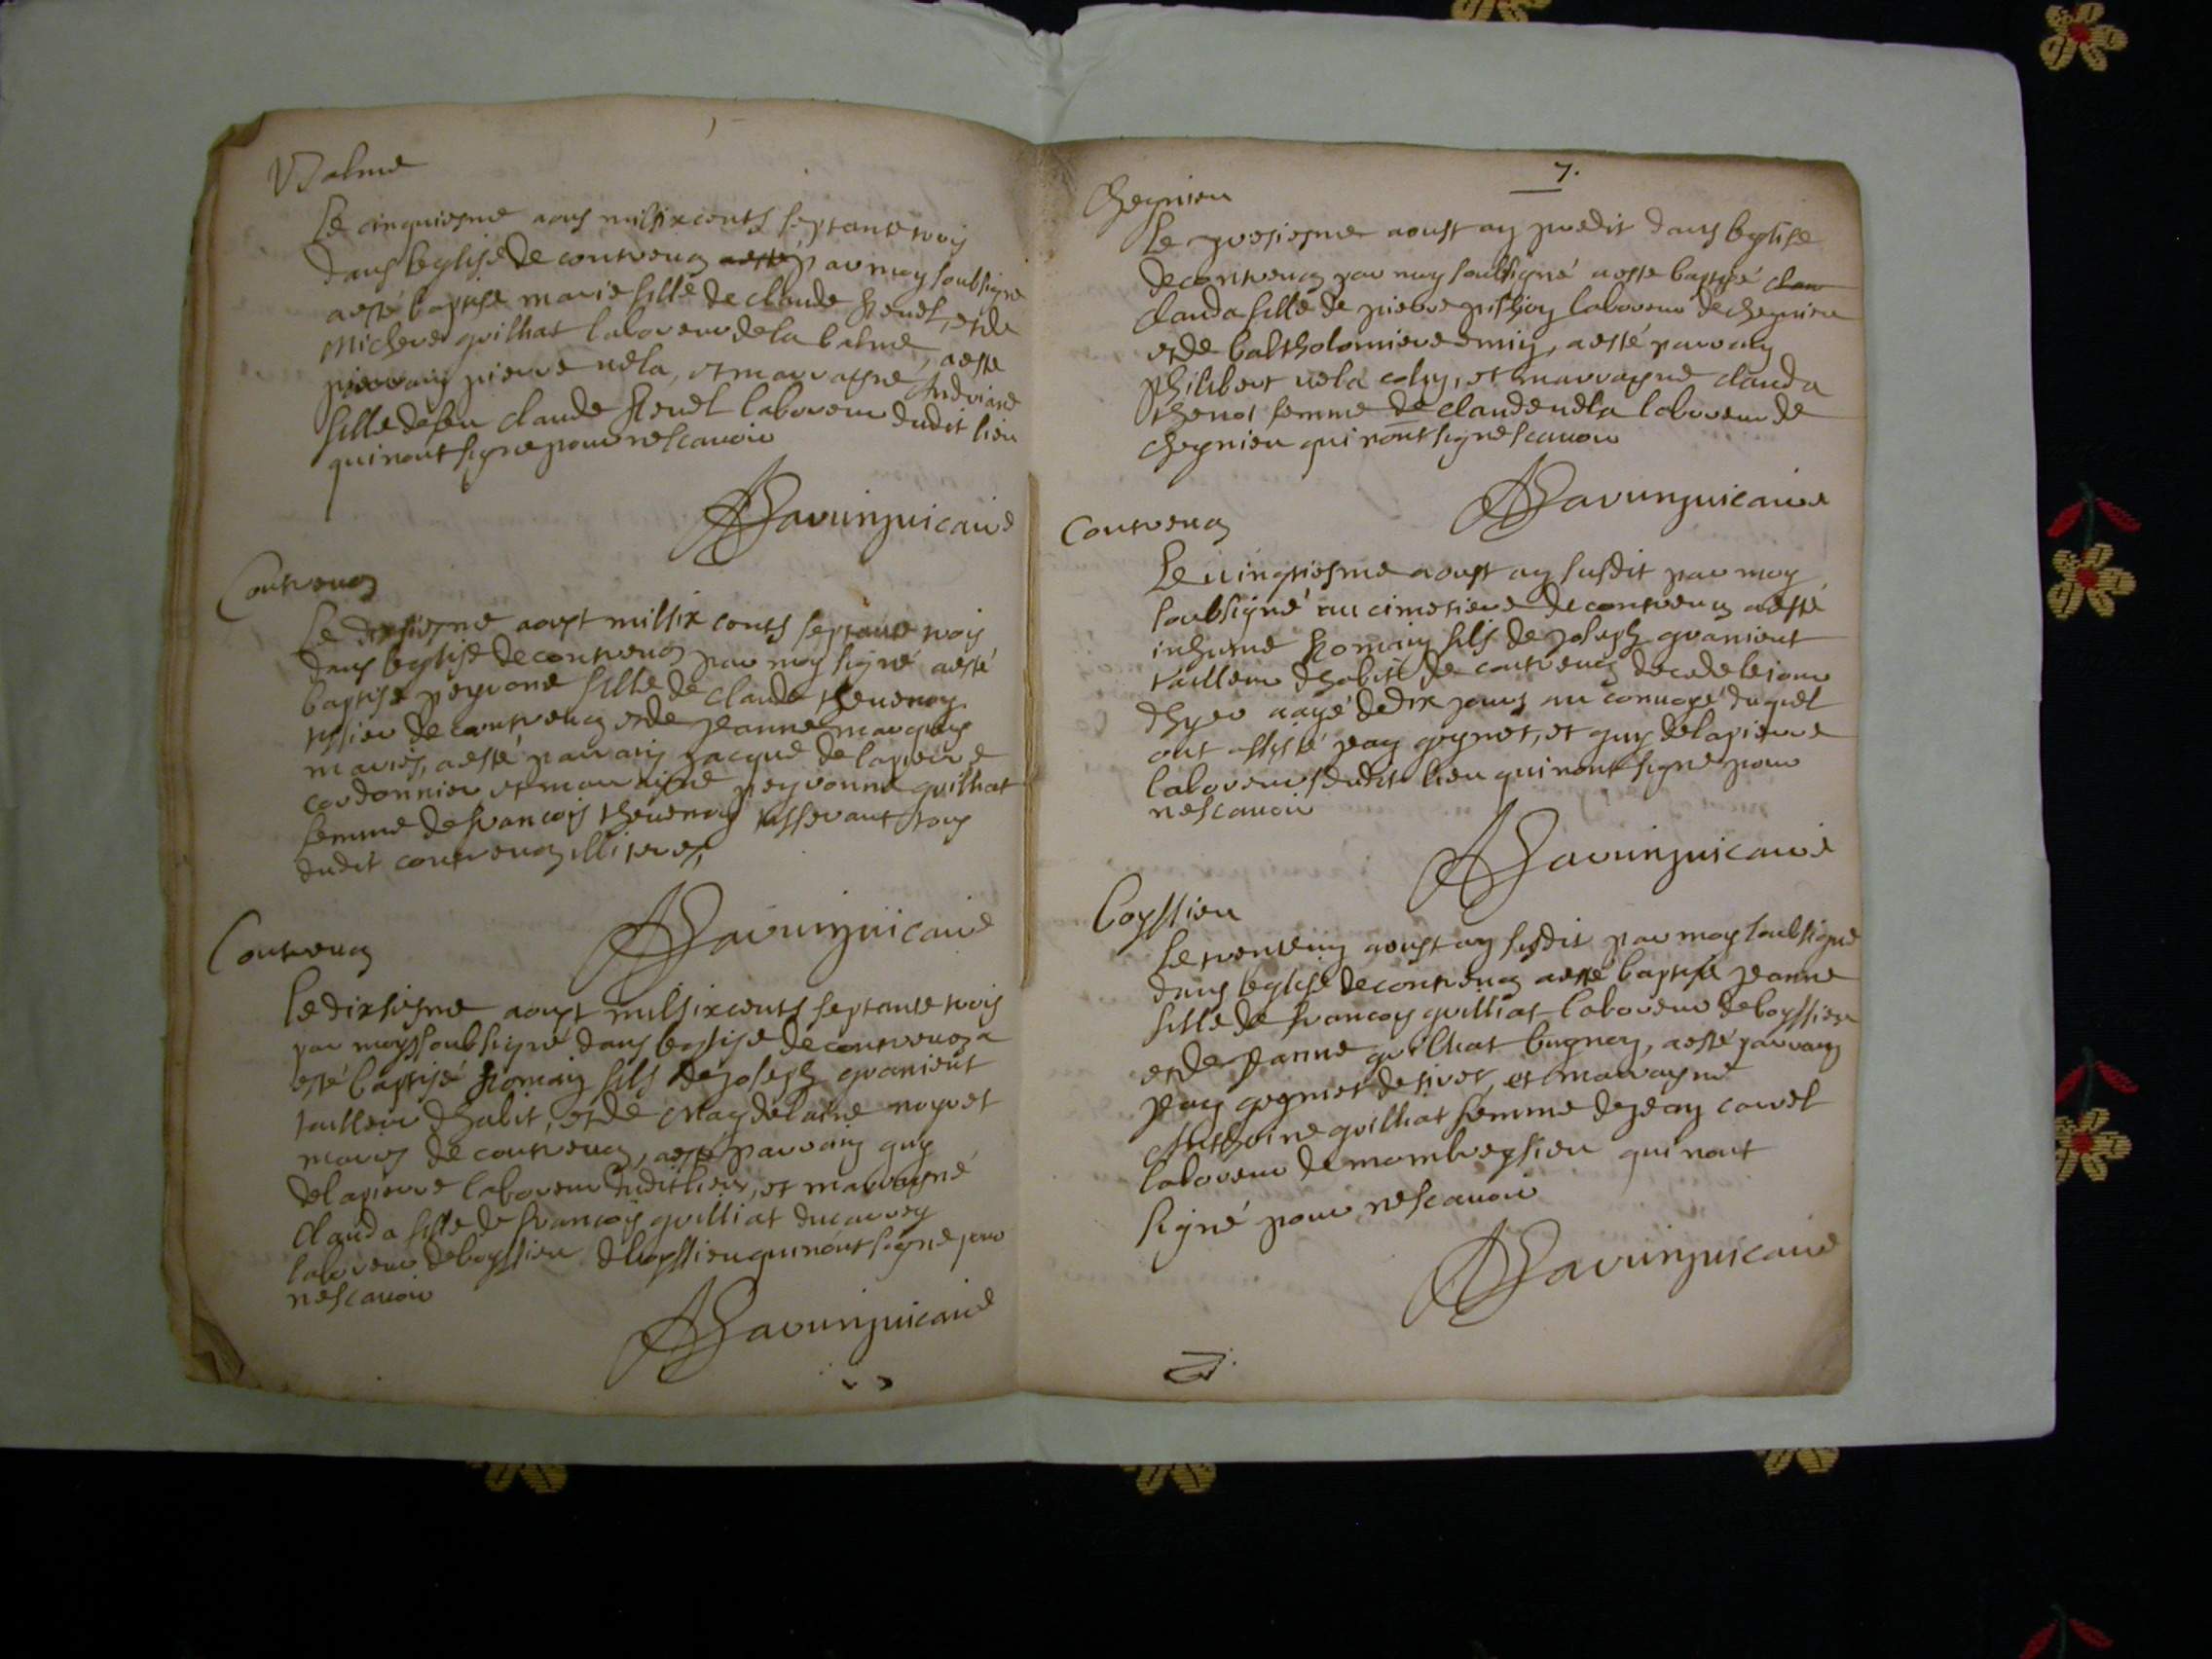 Balme
Le cinquiesme aous mil six cents septante trois
dans leglise de contrevoz aesté par moy soubsigné
aesté baptisé marie fille de claude Revel, et de
Micheve guilhat laboreur de la balme, aeste
parrain pierre vela, et marrayne Andriane
fille de feu claude Revel laboreur dudit lieu
qui nont signe pour ne scavoir
Savarin vicaire
Contrevoz
Le dixsiesme aoust mil six cents septante trois
dans leglise de contrevoz par moy signé aesté
baptisé peyrone fille de claude thevenoz
tissier de contrevoz et de Jeanne
mariés, aesté parrain Jacque de lapierre
cordonnier et marrayne peyronne guilhat
femme de francois thevenoz tisserant tous
dudit contrevoz illiteres,
Savarin vicaire
Contrevoz
Le dixsiesme aoust mil six cents septante trois
par moy soubsigné dans leglise de contrevoz a
esté baptisé Romain fils de Joseph granient
tailleur dhabit, et de Magdelaine noyret
mariés de contrevoz, aesté parrain guy
delapierre laboreur dudit lieu, et marrayne
Clauda fille de francois guilliat ducarrey
laboreur de boyssieu de boyssieu qui nont signe pour
ne scavoir
Savarin vicaire
7.
Chegnieu
Le aoust an predit dans leglise
de contrevoz par moy soubsigné aesté baptisé clau
clauda fille de pierre laboreur de chegnieu
et de baltholomieve emin, aesté parrain
philibert vela, et marrayne clauda
thenot femme de claude vela laboreur de
chegnieu qui nont signe scavoir
Savarin vicaire
Contrevoz
Le vingtiesme aoust an susdit par moy
soubsigné au cimetiere de contrevoz aesté
inhumé Romain fils de Joseph granient
tailleur dhabit de contrevoz decede le jour
dhyer aagé de dix jours au convoyé duquel
ont assisté Jean goynet, et guy delapierre
laboreurs dudit lieu qui nont signé pour
ne scavoir
Savarin vicaire
Boyssieu
Le trenteun aoust an susdit par moy soubsigné
dans leglise de contrevoz aesté baptisé Jeanne
fille de francois guilliat laboreur de boyssieu
et de Jeanne guilhat bugnoz, aesté parrain
Jean goynet de sivet, et marrayne
Anthoine guilhat femme de Jean carrel
laboreur de montbreysieu qui nont
signé pour ne scavoir
Savarin vicaire